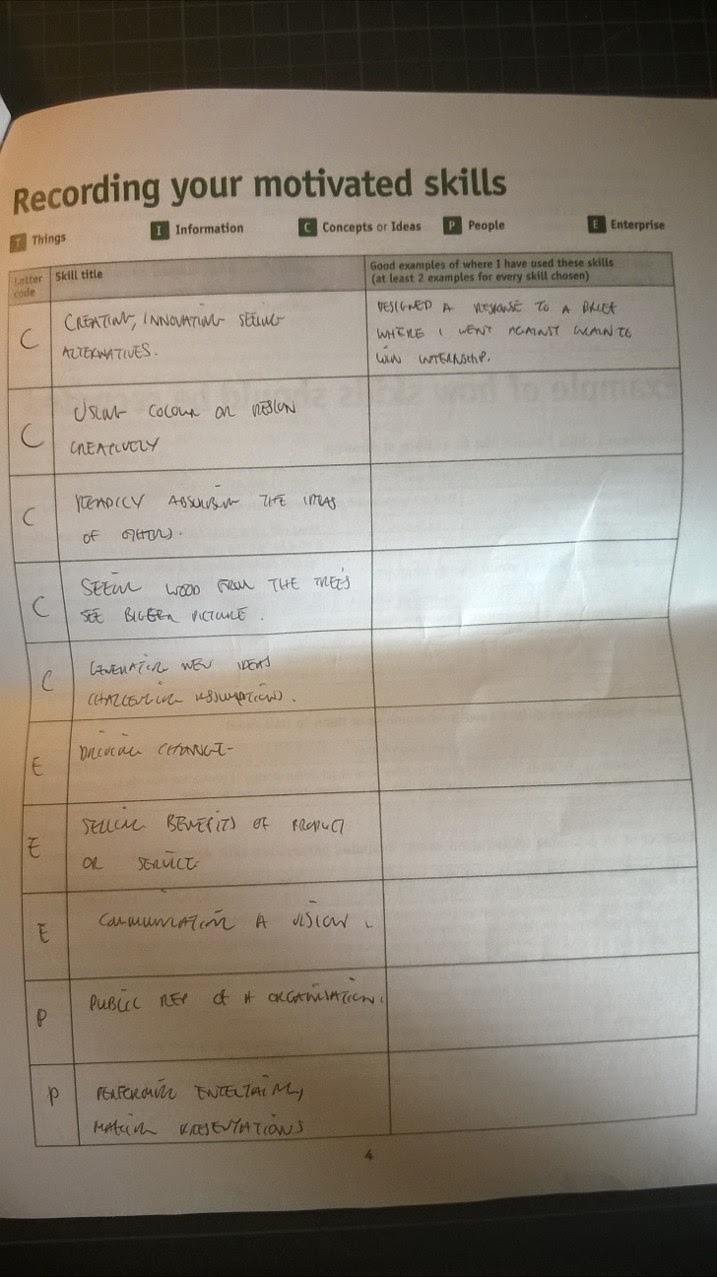 Recording your motivated skills
T Things I Information C Concepts or Ideas P People E Enterprise
Letter code
Skill title
Good examples of where I have used these skills
(at least 2 examples for every skill chosen)
C
CREATING, INNOVATING SEEING
ALTERNATIVES.
DESIGNED A RESPONSE TO A BRIEF
WHERE I WENT AGAINST GRAIN TO
WIN INTERNSHIP.
C
USING COLOUR OR DESIGN
CREATIVELY
C
READILY ABSORBING THE IDEAS
OF OTHERS.
C
SEEING WOOD FROM THE TREES
SEE BIGGER PICTURE.
C
GENERATING NEW IDEAS
CHALLENGING ASSUMPTIONS.
E
DRIVING CHANGE
E
SELLING BENEFITS OF PRODUCT
OR SERVICE
E
COMMUNICATING A VISION.
P
PUBLIC REP OF A ORGANISATION.
P
PERFORMING ENTERTAINING,
MAKING PRESENTATIONS
4